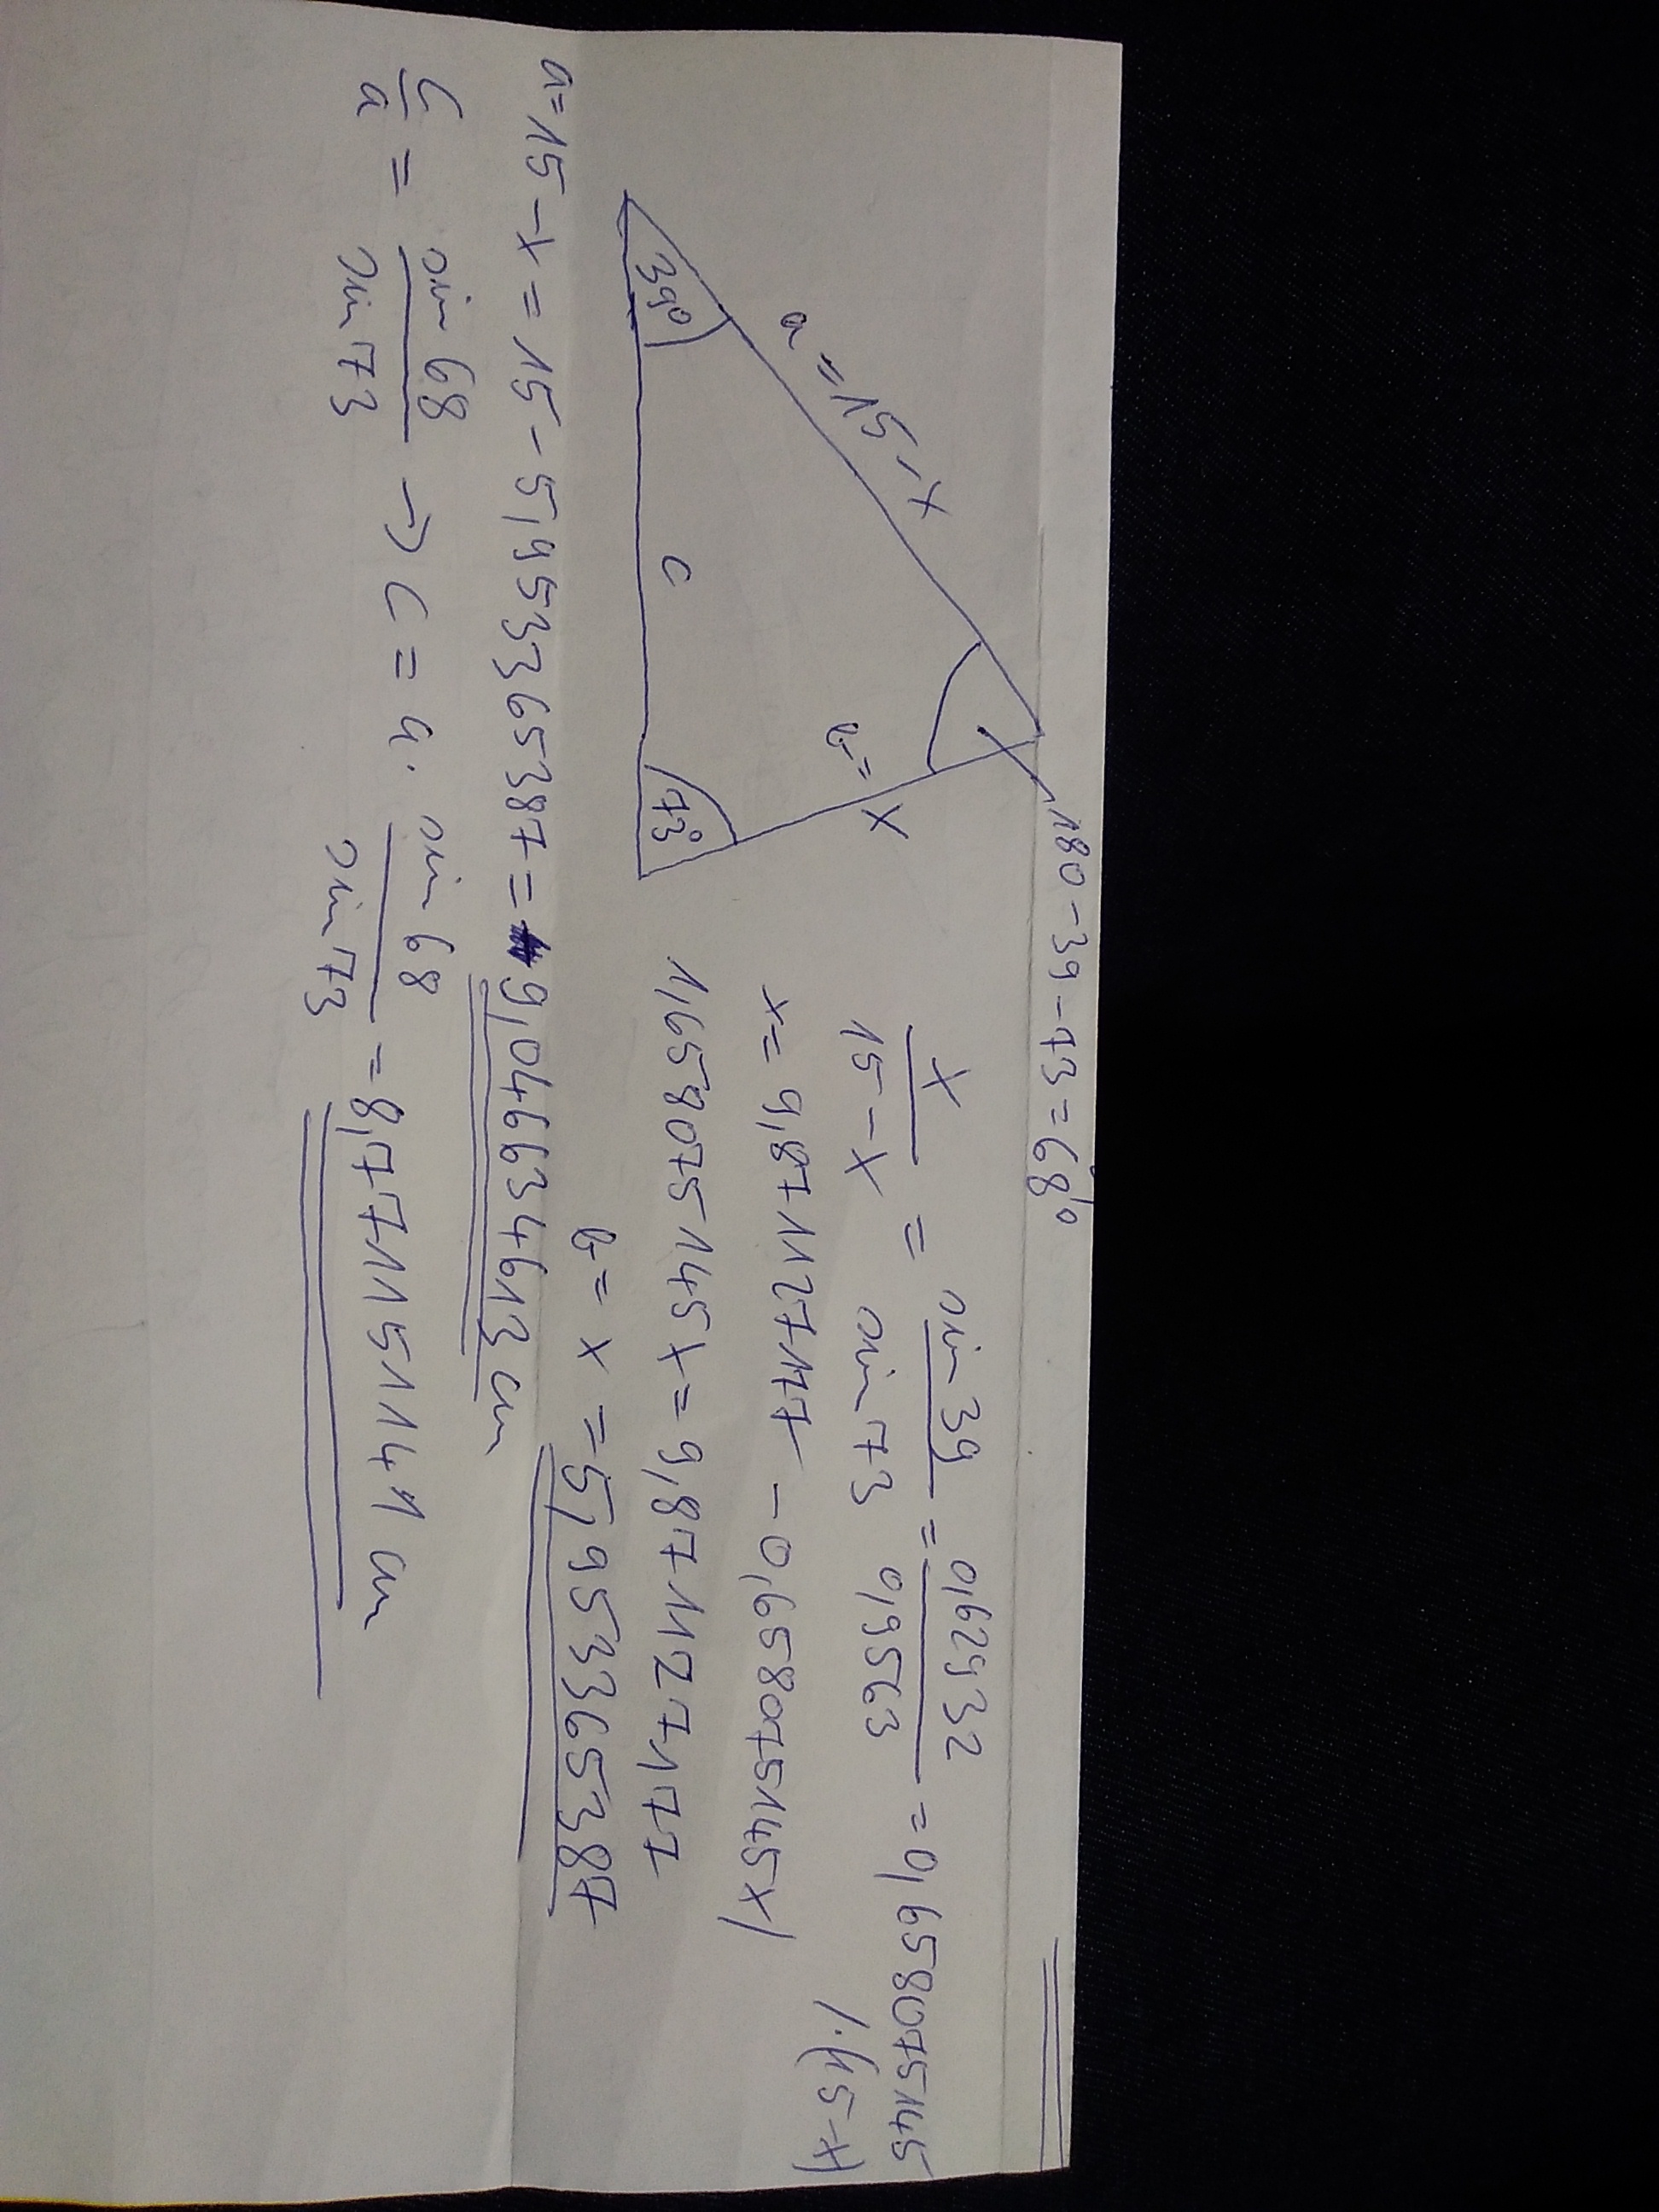 180 - 39 - 73 = 68°
a = 15 - x
b = x
39°
c
73°
x/(15 - x) = sin 39/sin 73 = 0,62932/0,9563 = 0,658075145 /·(15-x)
x = 9,871127177 - 0,658075145x/
1,658075145x = 9,871127177
b = x = 5,953365387
a = 15 - x = 15 - 5,953365387 = 9,046634613 cm
c/a = sin 68/sin 73 → c = a · sin 68/sin 73 = 8,77115141 cm